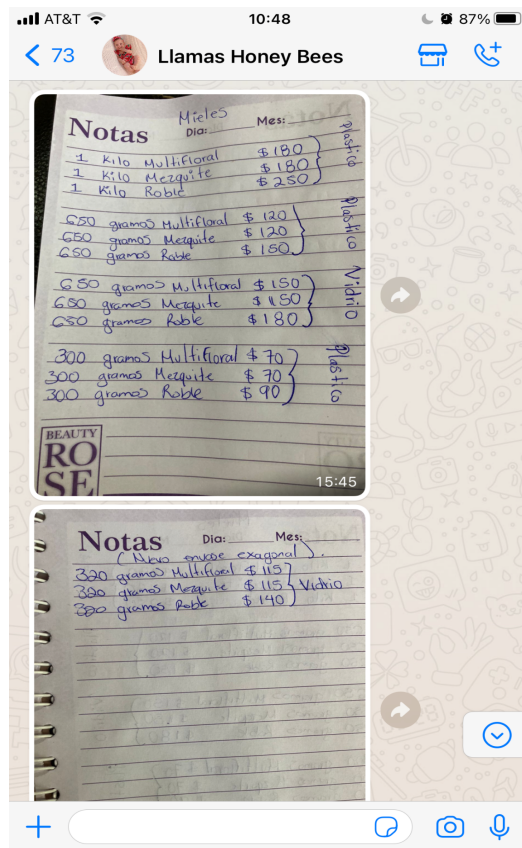 AT&T 10:48 87%
73 Llamas Honey Bees
Mieles
Notas Dia: Mes:
1 Kilo Multifloral $180
1 Kilo Mezquite $180
1 Kilo Roble $250
Plastico
650 gramos Multifloral $120
650 gramos Mezquite $120
650 gramos Roble $150
Plastico
650 gramos Multifloral $150
650 gramos Mezquite $150
650 gramos Roble $180
Vidrio
300 gramos Multifloral $70
300 gramos Mezquite $70
300 gramos Roble $90
Plastico
BEAUTY
RO
SE
15:45
Notas Dia: Mes:
(Nuevo envase exagonal).
320 gramos Multifloral $115
320 gramos Mezquite $115
320 gramos Roble $140
Vidrio